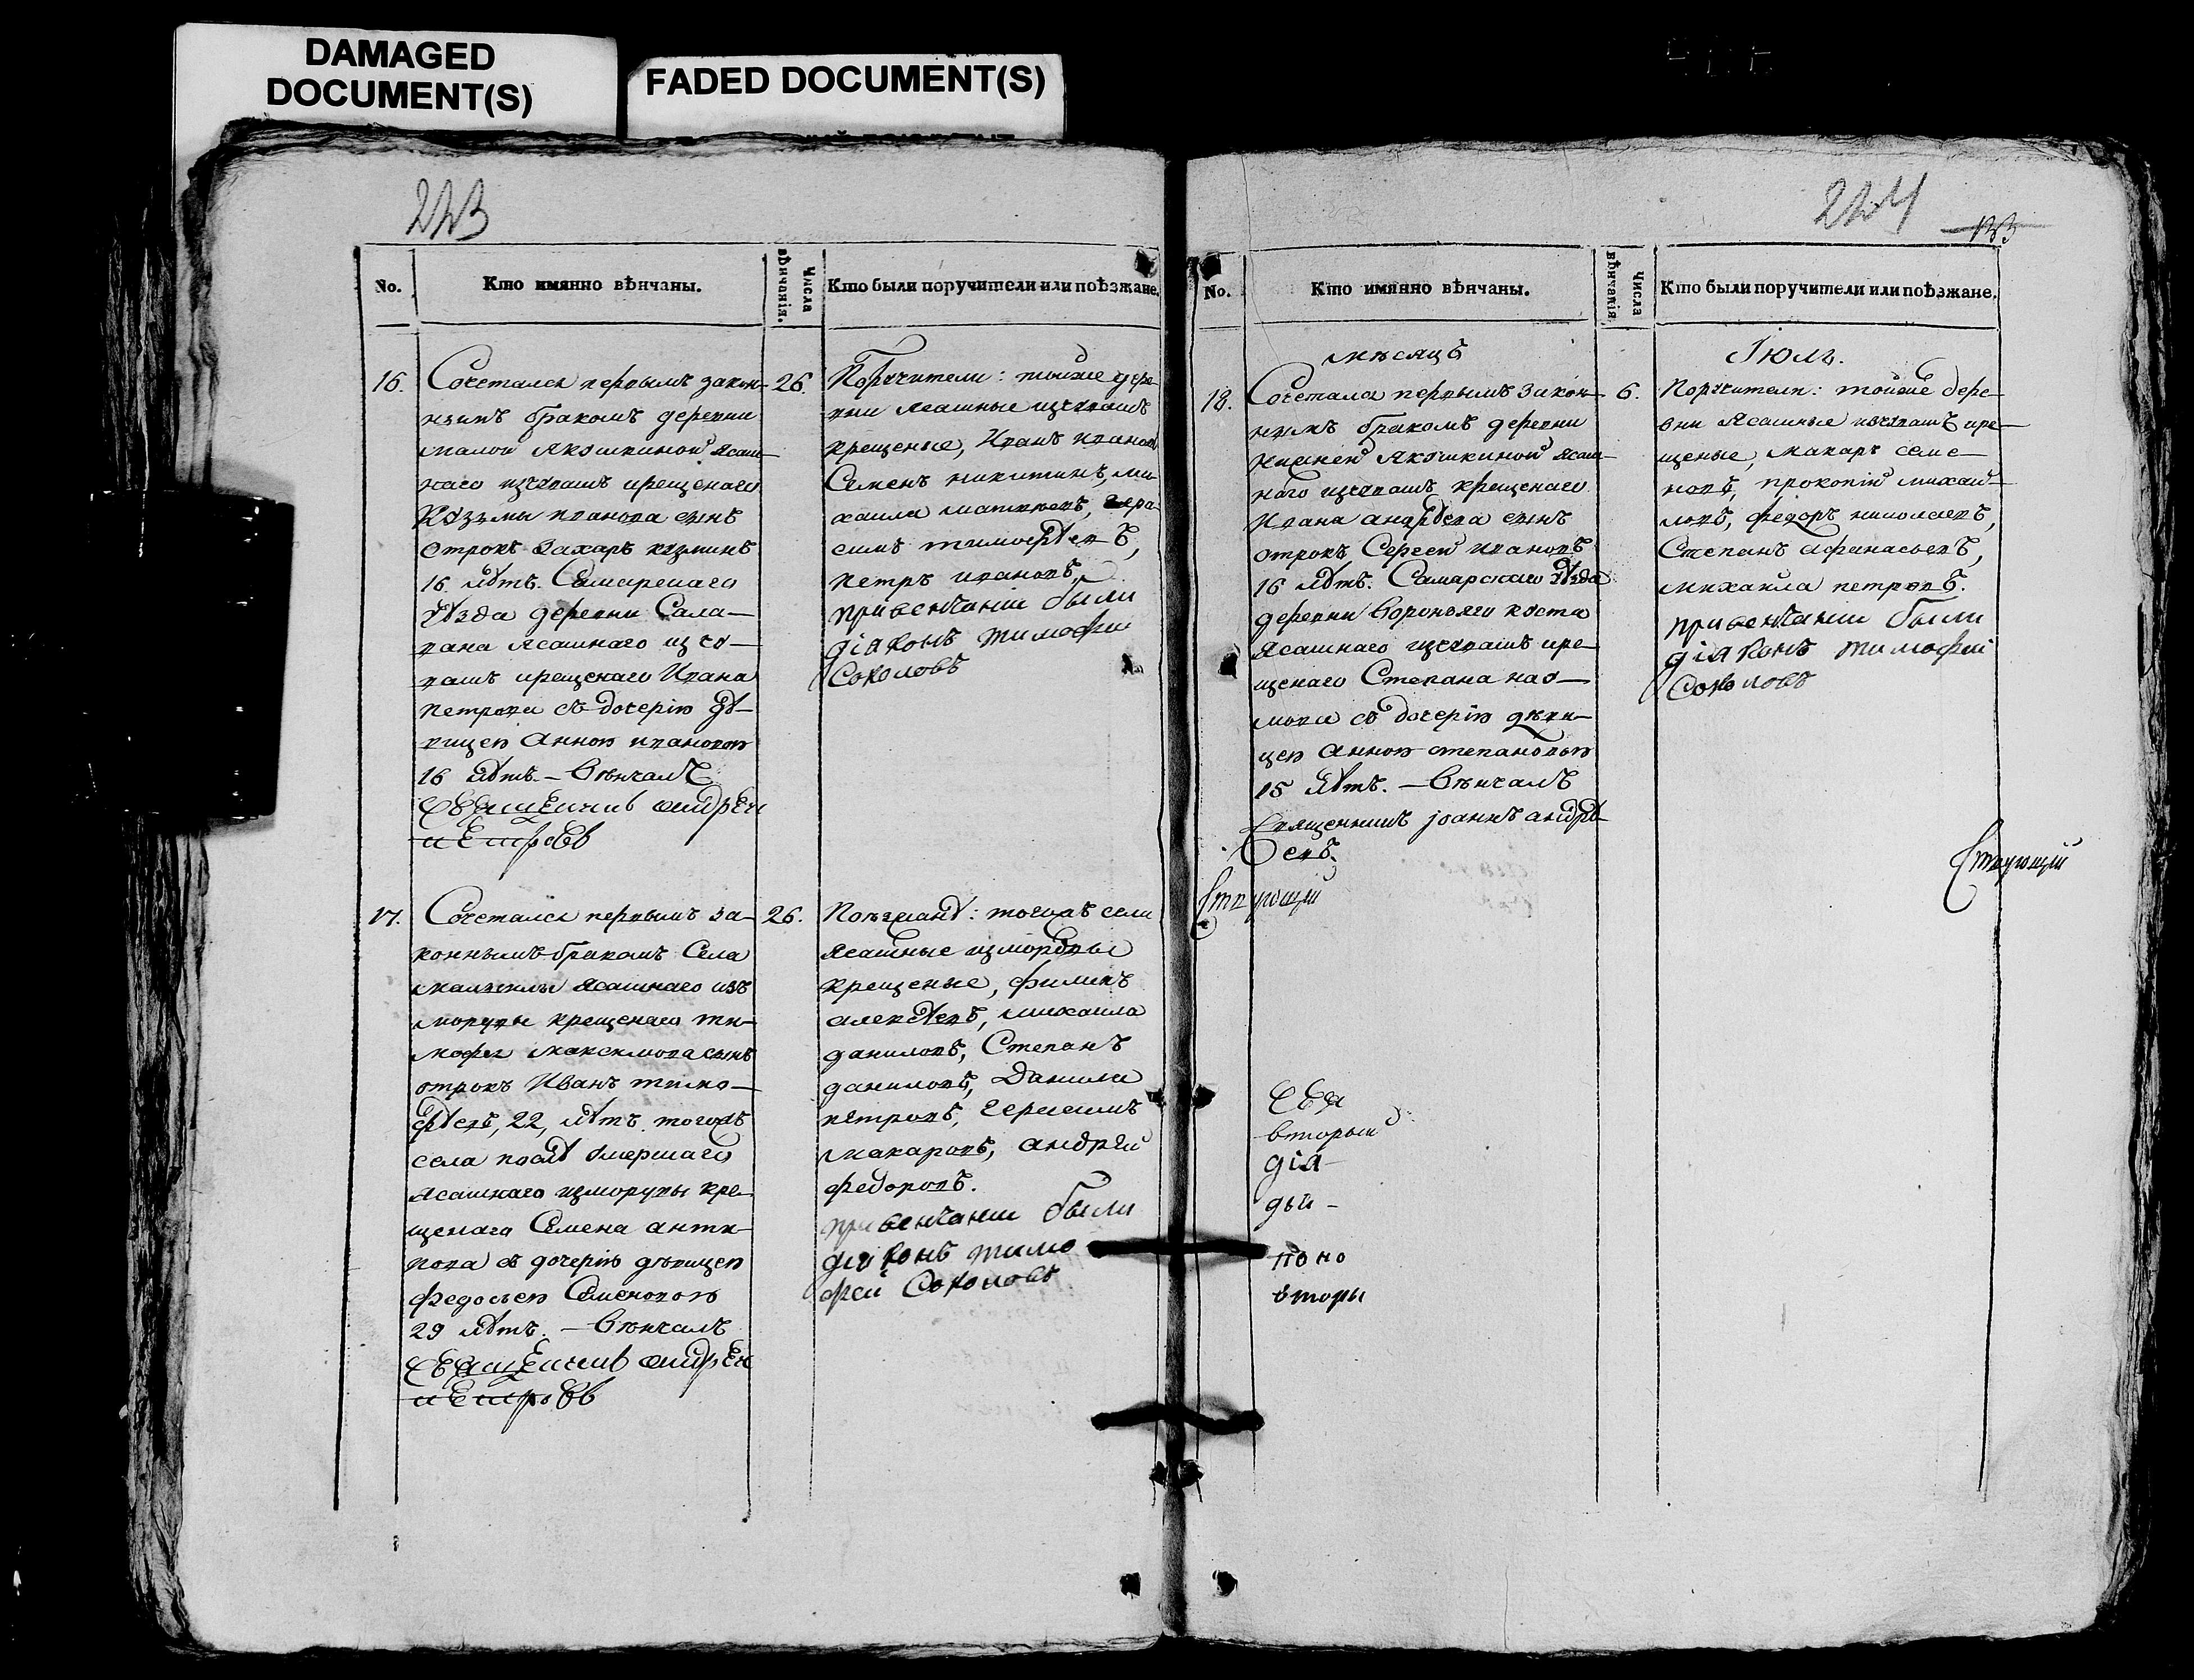 DAMAGED
DOCUMENT(S)
FADED DOCUMENT(S)
223
No.
Кто имянно вѣнчаны.
Числа
вѣнчанія.
Кто были поручители или поѣзжане.
16.
Сочетался первымъ закон-
нымъ бракомъ деревни
малой Якушкиной ясаш-
наго изчувашъ крещенаго
Кузьмы иванова сынъ
отрокъ Захаръ кузминъ
16 лѣтъ. Самарскаго
уѣзда деревни Сала-
вана ясашнаго изчу-
вашъ крещенаго Ивана
петрова съ дочерію дѣ-
вицею Анною ивановою
16 лѣтъ. – Вѣнчалъ
священникъ андрей
петровъ
26.
Поручители: тойже дере-
вни ясашные изчувашъ
крещеные, Иванъ ивановъ
Семенъ никитинъ, ми-
хаила матвѣевъ, гера-
симъ тимофѣевъ,
петръ ивановъ.
при венчаніи были
діаконъ тимофѣи
Соколовъ
17.
Сочетался первымъ за-
коннымъ бракомъ Села
ясашнаго изъ
мордвы крещенаго ти-
мофея максимова сынъ
отрокъ Иванъ тимо-
фѣевъ, 22, лѣтъ. тогожъ
села послѣ умершаго
ясашнаго измордвы кре-
щенаго Семена анти-
пова съ дочерію дѣвицею
федосьею Семеновою
29 лѣтъ. – Вѣнчалъ
священникъ андрей
петровъ
26.
Поѣзжанѣ: тогожъ села
ясашные измордвы
крещеные, филипъ
алексѣевъ, михаила
даниловъ, Степанъ
даниловъ, Данила
петровъ, герасимъ
макаровъ, андрей
федоровъ.
при венчании были
діаконъ тимо
фей Соколовъ
224
133
No.
Кто имянно вѣнчаны.
Числа
вѣнчанія.
Кто были поручители или поѣзжане.
мѣсяцъ
Іюль.
18.
Сочетался первымъ закон-
нымъ бракомъ деревни
нижней Якушкиной ясаш-
наго изчувашъ крещенаго
Ивана андрѣева сынъ
отрокъ Сергей ивановъ
16 лѣтъ. Самарскаго уѣзда
деревни Вороньяго куста
ясашнаго изчувашъ кре-
щенаго Степана нау-
мова съ дочерію дѣви-
цею анною степановою
15 лѣтъ. – Вѣнчалъ
священникъ іоаннъ андрѣ-
евъ.
6.
Поручители: тойже дере-
вни ясашные изчувашъ кре-
щеные, макаръ семе-
новъ, прокопій михай-
ловъ, федоръ николаевъ,
Степанъ афанасьевъ,
михаила петровъ.
при венчании были
діаконъ тимофѣй
Соколовъ
Свя
вторый
дія-
дьи-
поно
вторы